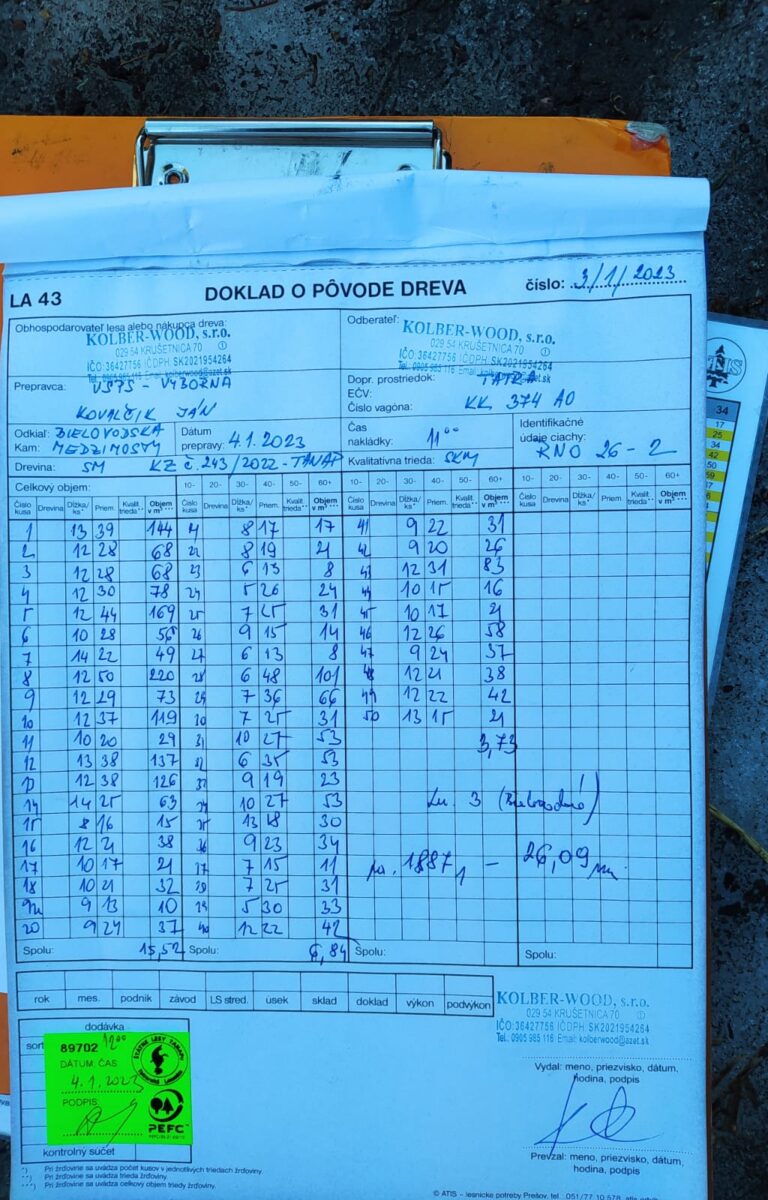 LA 43
DOKLAD O PÔVODE DREVA
číslo: 3/1/2023
Obhospodarovateľ lesa alebo nákupca dreva:
KOLBER-WOOD, s.r.o.
029 54 KRUŠETNICA 70
IČO: 36427756 IČDPH: SK2021954264
Odberateľ:
KOLBER-WOOD, s.r.o.
029 54 KRUŠETNICA 70
IČO: 36427756 IČDPH: SK2021954264
Tel.: 0905 985 116 Email: kolberwood@azet.sk
Prepravca: VSTS - VÝBORNÁ
KOVALČÍK JÁN
Dopr. prostriedok: TATRA
EČV:
Číslo vagóna: KK 374 AO
Odkiaľ: BIELOVODSKÁ
Kam: MEDZIMOSTY
Dátum
prepravy: 4.1.2023
Čas
nakládky: 11⁰⁰
Identifikačné
údaje ciachy:
RNO 26-2
Drevina: SM KZ č.243/2022-TANAP
Kvalitatívna trieda: SKM
Celkový objem: 10- 20- 30- 40- 50- 60+ 10- 20- 30- 40- 50- 60+ 10- 20- 30- 40- 50- 60+
Číslo kusa Drevina Dĺžka/ks* Priem. Kvalit. trieda** Objem v m³*** Číslo kusa Drevina Dĺžka/ks* Priem. Kvalit. trieda** Objem v m³*** Číslo kusa Drevina Dĺžka/ks* Priem. Kvalit. trieda** Objem v m³*** Číslo kusa Drevina Dĺžka/ks* Priem. Kvalit. trieda** Objem v m³***
1 13 39 144 8 17 17 41 9 22 31
2 12 28 68 22 8 19 21 42 9 20 26
3 12 28 68 23 6 13 8 43 12 31 83
4 12 30 78 24 5 26 24 44 10 15 16
5 12 44 169 25 7 25 31 45 10 17 21
6 10 28 56 26 9 15 14 46 12 26 58
7 14 22 49 27 6 13 8 47 9 24 37
8 12 50 220 28 6 48 101 48 12 21 38
9 12 29 73 29 7 36 66 49 12 22 42
10 12 37 119 30 7 25 31 50 13 15 21
11 10 20 29 31 10 27 53 3,73
12 13 38 137 32 6 35 53
13 12 38 126 9 19 23
14 14 25 63 34 10 27 53 3
15 8 16 15 35 13 18 30
16 12 21 38 36 9 23 34
17 10 17 21 37 7 15 11 1887 - 26,09
18 10 21 32 7 25 31
9 13 10 5 30 33
20 9 24 37 40 12 22 42
Spolu: 15,52 Spolu: 6,84 Spolu: Spolu:
rok mes. podnik závod LS stred. úsek sklad doklad výkon podvýkon
KOLBER-WOOD, s.r.o.
029 54 KRUŠETNICA 70
IČO: 36427756 IČDPH: SK2021954264
Tel.: 0905 985 116 Email: kolberwood@azet.sk
dodávka
sort
89702 12⁰⁰
DÁTUM, ČAS:
4.1.202
PODPIS:
ŠTÁTNE LESY TANAPU
PEFC
kontrolný súčet
Vydal: meno, priezvisko, dátum,
hodina, podpis
Prevzal: meno, priezvisko, dátum,
hodina, podpis
*) Pri žrďovine sa uvádza počet kusov v jednotlivých triedach žrďoviny.
**) Pri žrďovine sa uvádza trieda žrďoviny.
***) Pri žrďovine sa uvádza celkový objem triedy žrďoviny.
© ATIS - lesnícke potreby Prešov, tel.
34
17
25
34
42
50
59